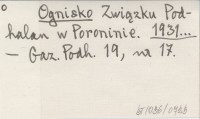 Ognisko Związku Pod-
halan w Poroninie. 1931...
— Gaz. Podh. 19, nr 17.